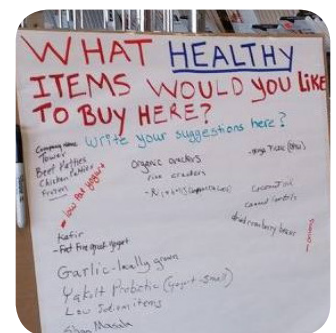 WHAT HEALTHY
ITEMS WOULD YOU LIKE
TO BUY HERE?
Write your suggestions here?
Tower
Beef Patties
Chicken Patties
- low fat yogurt
organic crackers
rice crackers
Coconut
canned lentils
dried cranberry
- onions
Kefir
- Fat Free greek yogurt
Garlic - locally grown
Yakult Probiotic (yogurt - small)
Low Sodium items
Masala